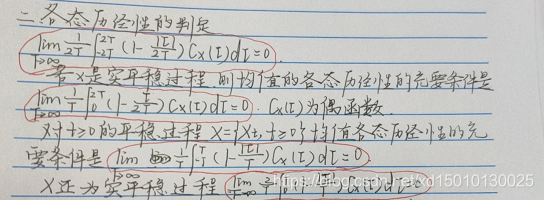 二、各态历经性的判定
lim T→∞ 1/2T ∫_{-2T}^{2T} (1-|τ|/2T) Cx(τ)dτ=0
若X是实平稳过程,则均值的各态历经性的充要条件是
lim T→∞ 1/T ∫_0^{2T} (1-τ/2T) Cx(τ)dτ=0. Cx(τ)为偶函数.
对t≥0的平稳过程X={Xt,t≥0}均值各态历经性的充
要条件是 lim T→∞ 1/T ∫_{-T}^{T} (1-|τ|/T) Cx(τ)dτ=0.
X还为实平稳过程 lim T→∞ 2/T ∫_0^T
https://blog.csdn.net/xd15010130025